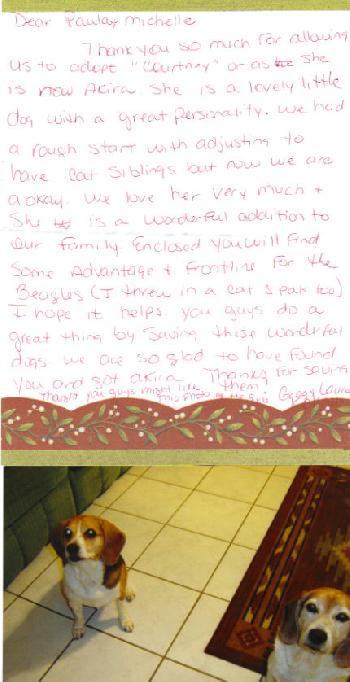 Dear Paula & Michelle
Thank you so much for allowing
us to adopt "Courtney" or as she
is now Akira. She is a lovely little
dog with a great personality. We had
a rough start with adjusting to
have cat siblings but now we are
aokay. We love her very much +
She is a wonderful addition to
our family Enclosed you will find
Some Advantage + Frontline for the
Beagles (I threw in a cat s pak too)
I hope it helps. you guys do a
great thing by saving these wonderful
dogs. we are so glad to have found
you and got akira. Thanks for saving
them
Thought you guys might like this photo of the girls Gregg Laura